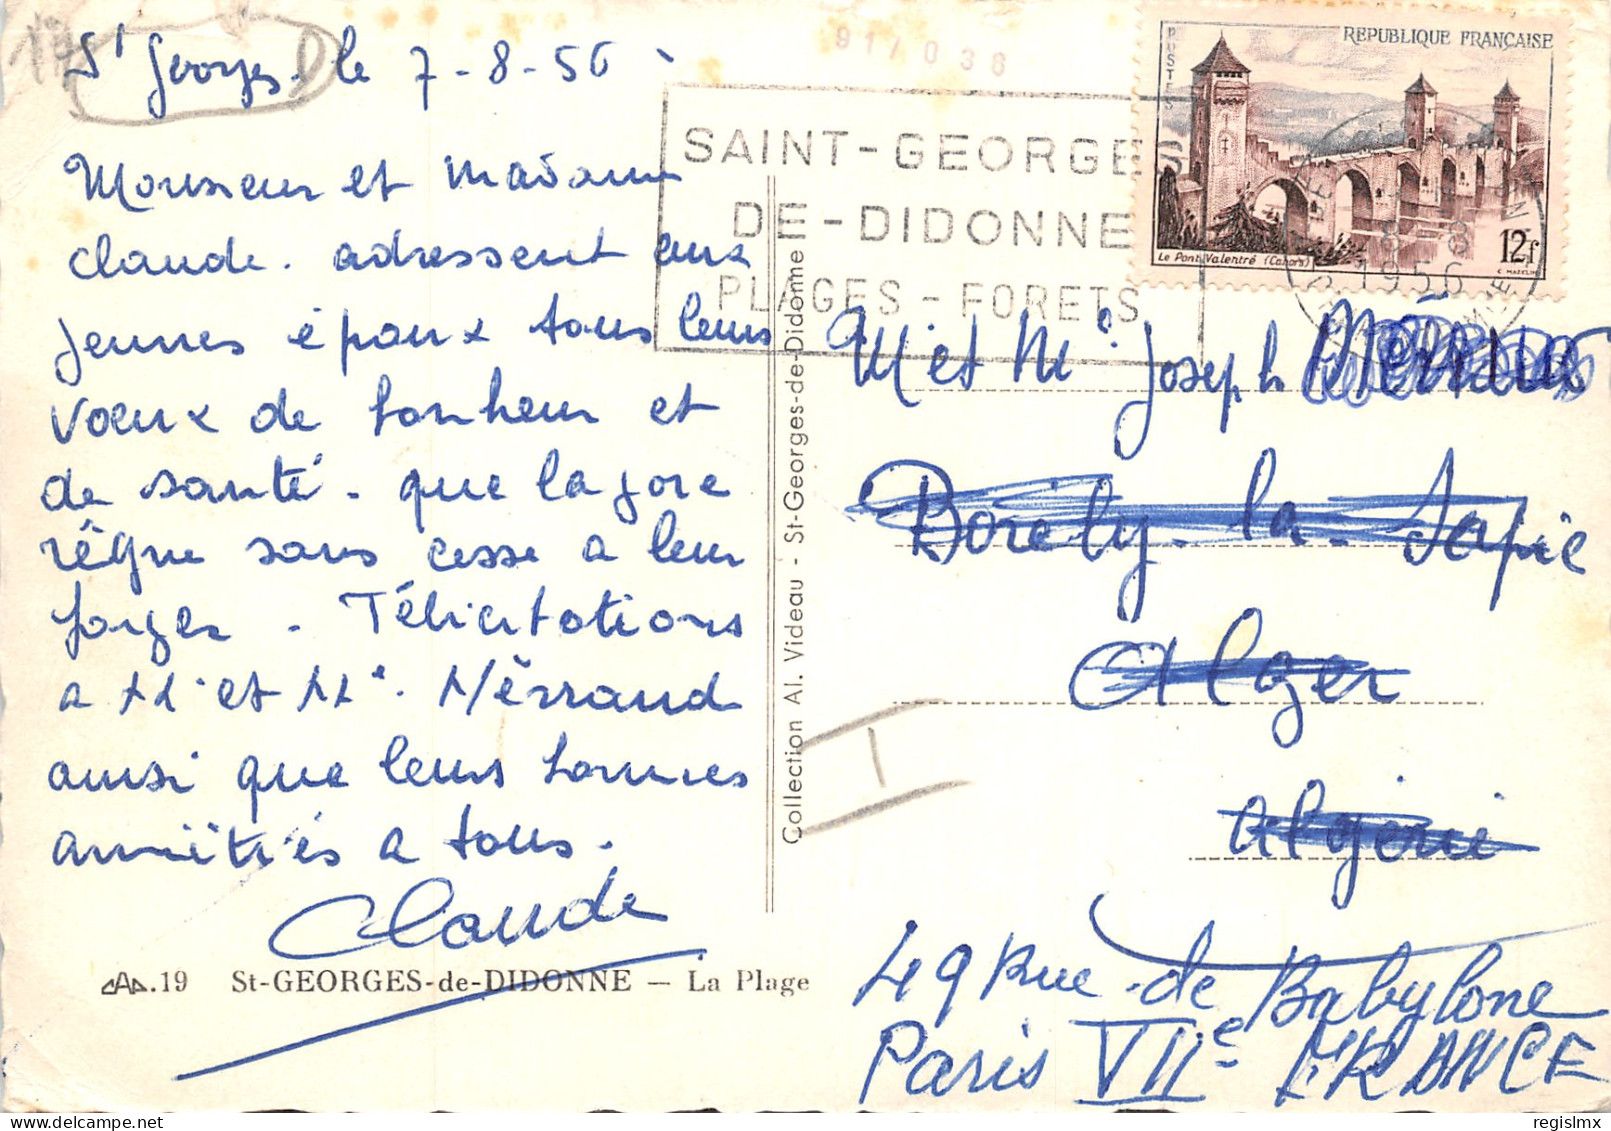 St Georges le 7-8-56
Monsieur et Madame
Claude. adressent aux
jeunes époux tous leurs
vœux de bonheur et
de santé. que la joie
règne sans cesse a leur
foyer. Félicitations
a M. et Me. Mérraud
ainsi que leurs bonnes
amitiés a tous.
Claude
cAp.19 St-GEORGES-de-DIDONNE — La Plage
Collection Al. Videau - St-Georges-de-Didonne
91/038
SAINT-GEORGES
DE-DIDONNE
PLAGES-FORETS
REPUBLIQUE FRANÇAISE
POSTES
Le Pont Valentré (Cahors)
12f
C. MAZELIN
8-8
1956
M et Me Joseph
Borély-la-Sapie
Alger
Algérie
49 Rue de Babylone
Paris VIIe FRANCE
regislmx